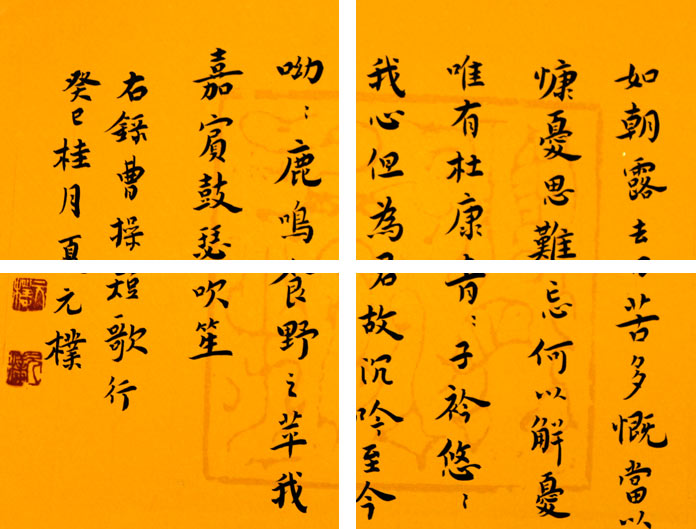 如朝露去日苦多慨當以
慷憂思難忘何以解憂
唯有杜康青〻子衿悠〻
我心但為君故沉吟至今
呦〻鹿鳴食野之苹我
嘉賓鼓瑟吹笙
右錄曹操短歌行
癸巳桂月夏元樸